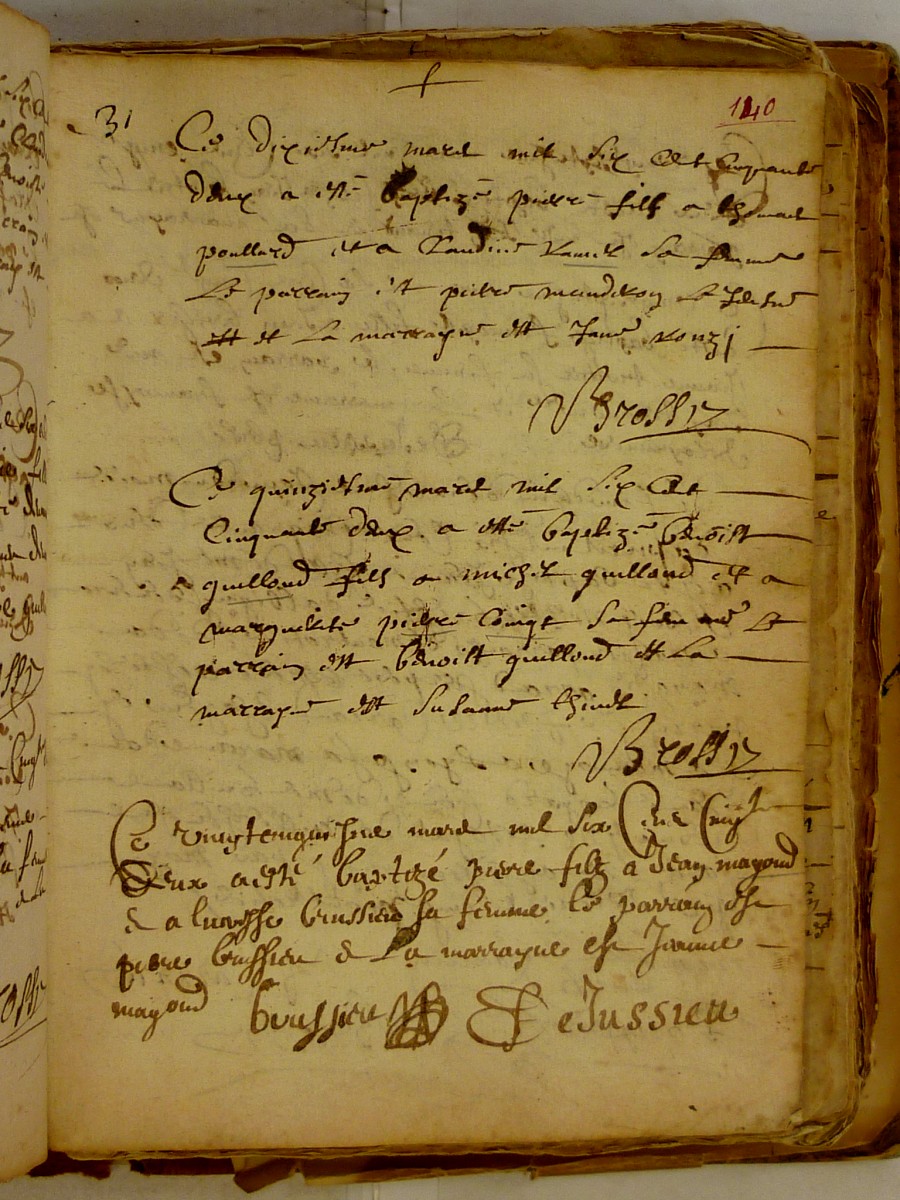 31
140
Ce dixiesme mars mil six Cent Cinquante
deux a esté baptizé pierre fils a thomas
poullard et a Claudine sa femme
Le parrain est pierre Le
et La marrayne est Jane
Brossy
Ce quinziesme mars mil six Cent
Cinquante deux a esté baptizé benoist
guilloud fils a michel guilloud et a
marguerite pierre Coinge sa femme Le
parrain est benoist guilloud et La
marrayne est Susanne
Brossy
Ce mars mil six Cens Cinqte
Deux a esté baptizé piere filz a Jean mayoud
& a bussiere sa femme Le parrain est
piere bussieu & La marrayne est Jeanne
mayoud bussieu DeJussieu